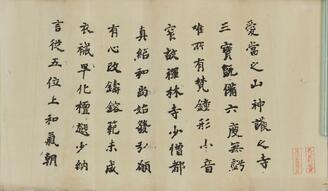 愛當之山神護之寺
三寶既備六度無虧
唯所有梵鐘形小音
窄故禪林寺少僧都
真紹和尚始發弘願
有心改鑄鎔範未成
衣祴早化檀越少納
言從五位上和氣朝